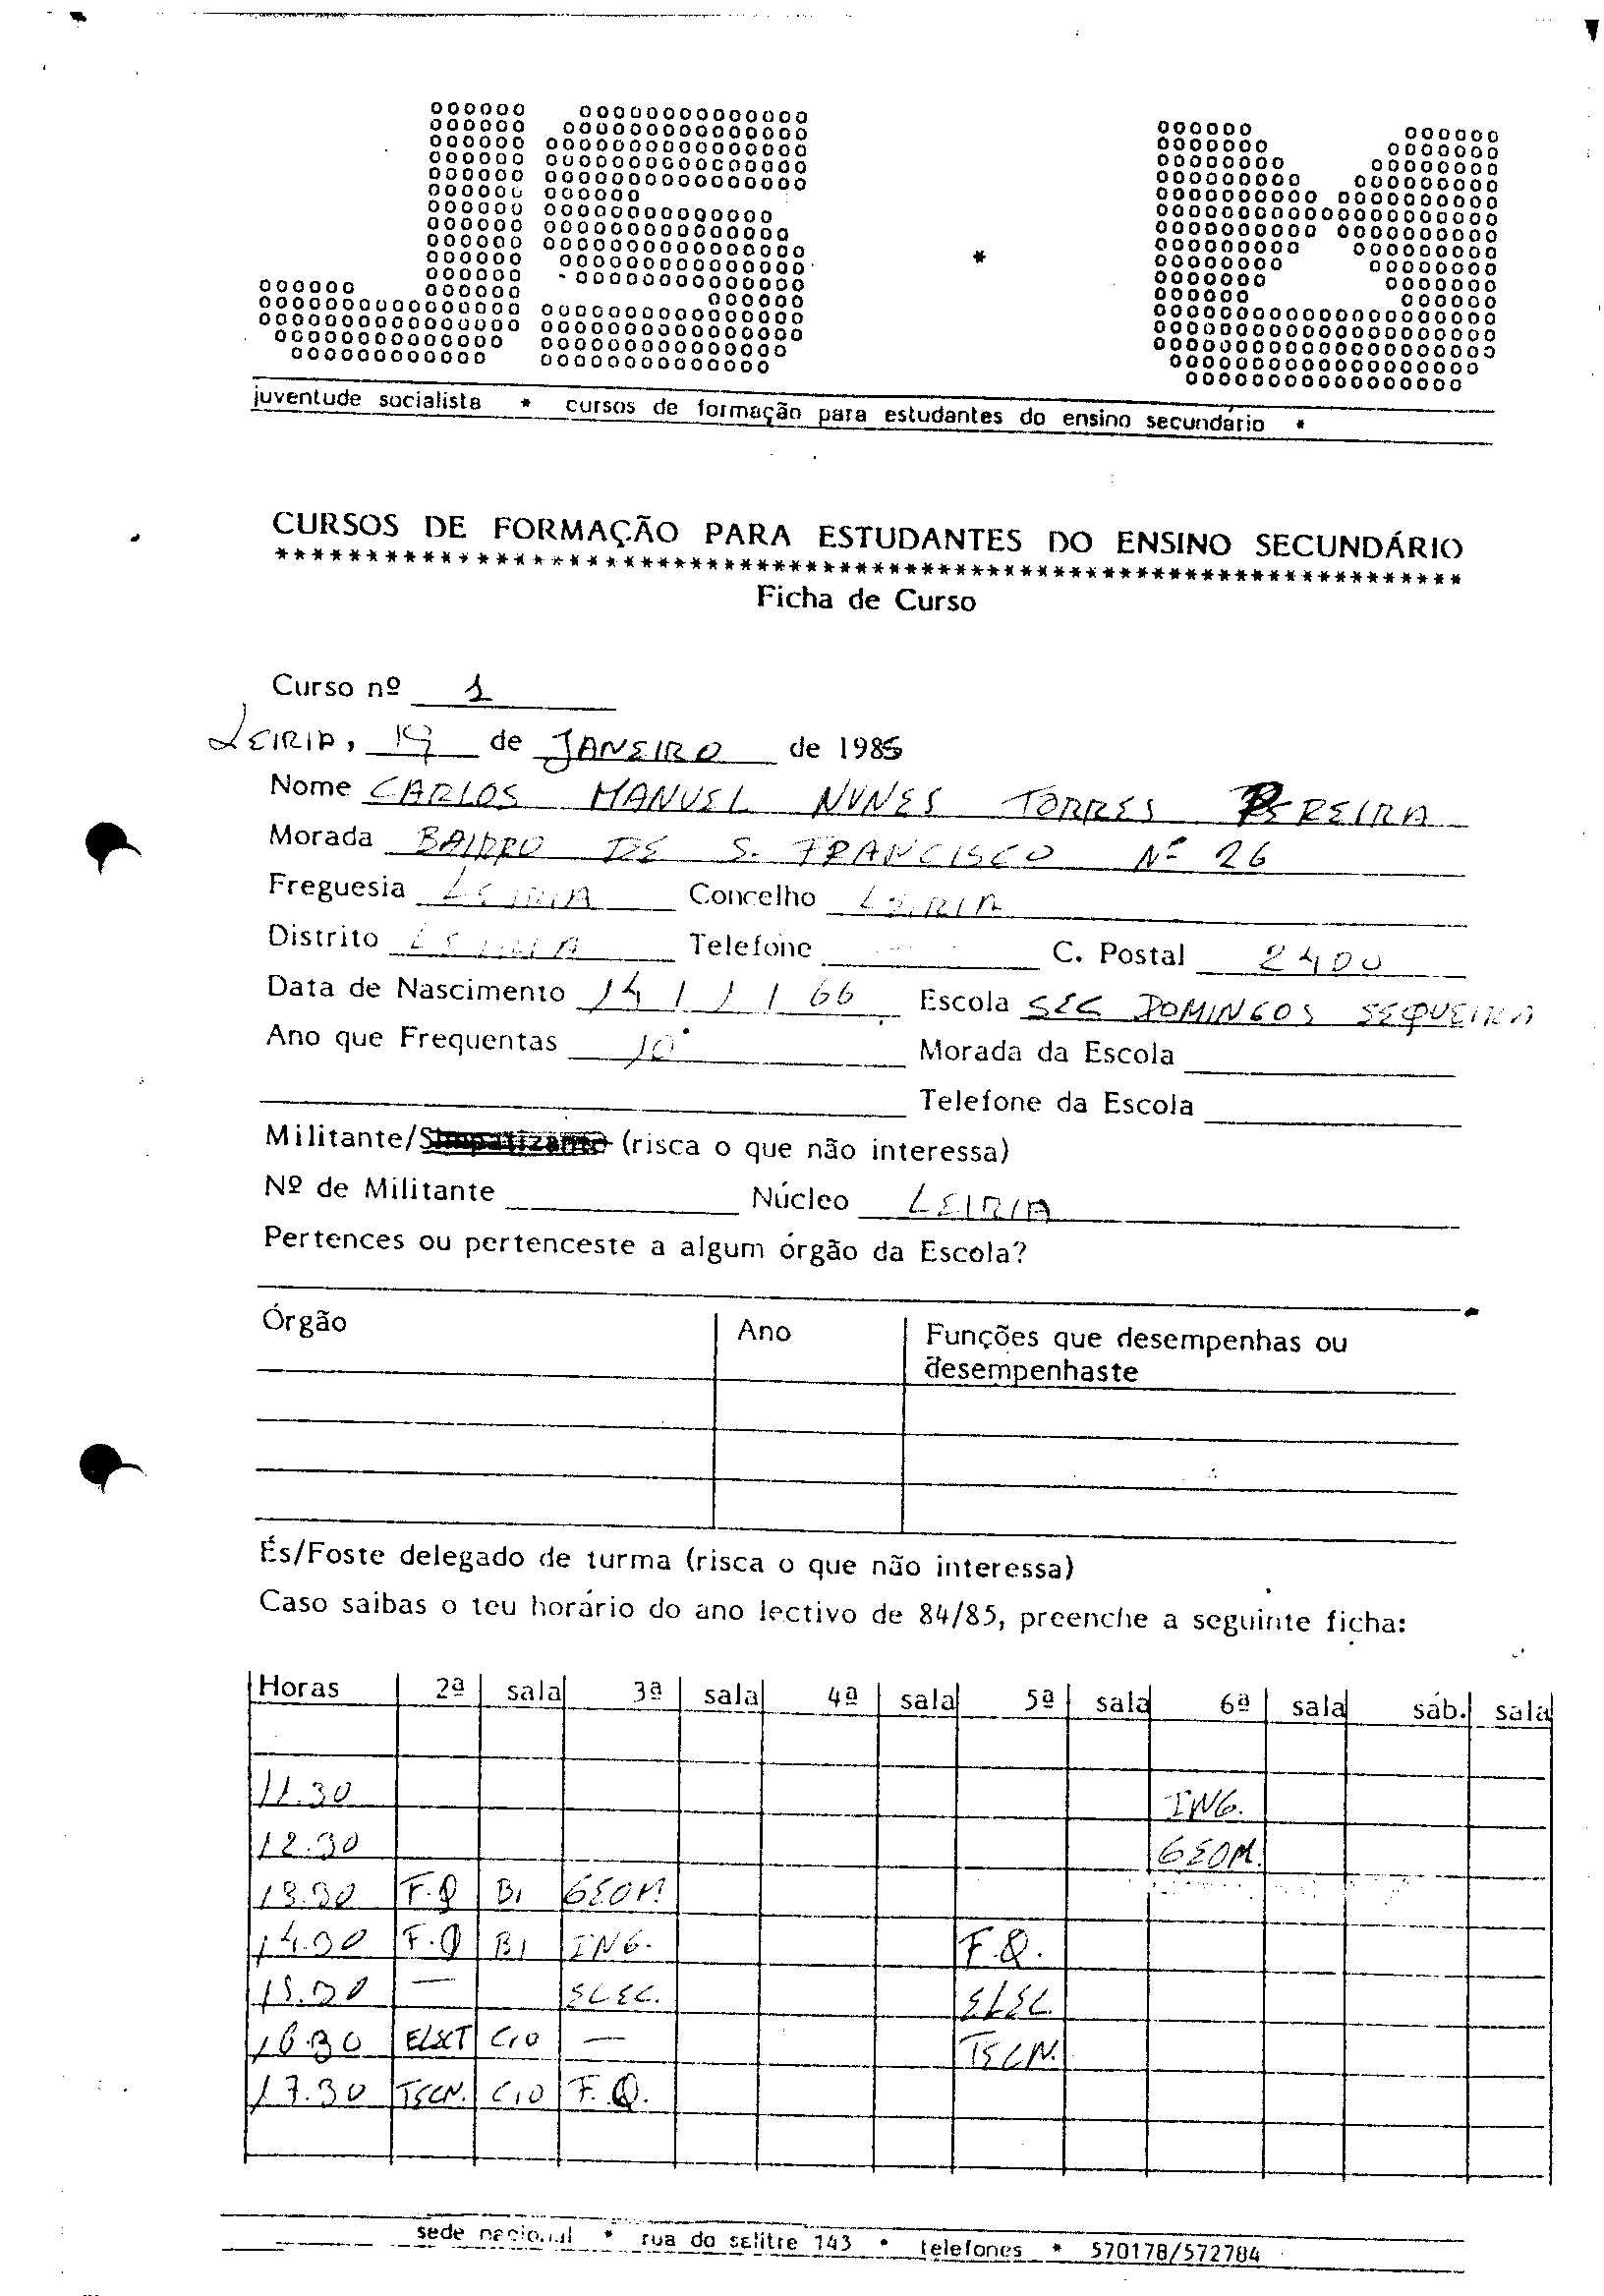 juventude socialista * cursos de formação para estudantes do ensino secundário *
CURSOS DE FORMAÇÃO PARA ESTUDANTES DO ENSINO SECUNDÁRIO
Ficha de Curso
Curso nº 1
LEIRIA, de JANEIRO de 1985
Nome CARLOS MANUEL NUNES TORRES PEREIRA
Morada BAIRRO DE S. FRANCISCO Nº 26
Freguesia LEIRIA Concelho LEIRIA
Distrito LEIRIA Telefone C. Postal 2400
Data de Nascimento 14/1/66 Escola SEC DOMINGOS SEQUEIRA
Ano que Frequentas 10º Morada da Escola
Telefone da Escola
Militante/Simpatizante (risca o que não interessa)
Nº de Militante Núcleo LEIRIA
Pertences ou pertenceste a algum órgão da Escola?
Órgão Ano Funções que desempenhas ou
desempenhaste
És/Foste delegado de turma (risca o que não interessa)
Caso saibas o teu horário do ano lectivo de 84/85, preenche a seguinte ficha:
Horas 2ª sala 3ª sala 4ª sala 5ª sala 6ª sala sáb. sala
11.30 ING.
12.30 GEOM.
13.30 F.Q B1 GEOM
14.30 F.Q B1 ING. F.Q.
15.30 — ELEC. ELEC.
16.30 ELECT C10 — TECN.
17.30 TECN. C10 F.Q.
sede nacional * rua do salitre 143 * telefones * 570178/572784